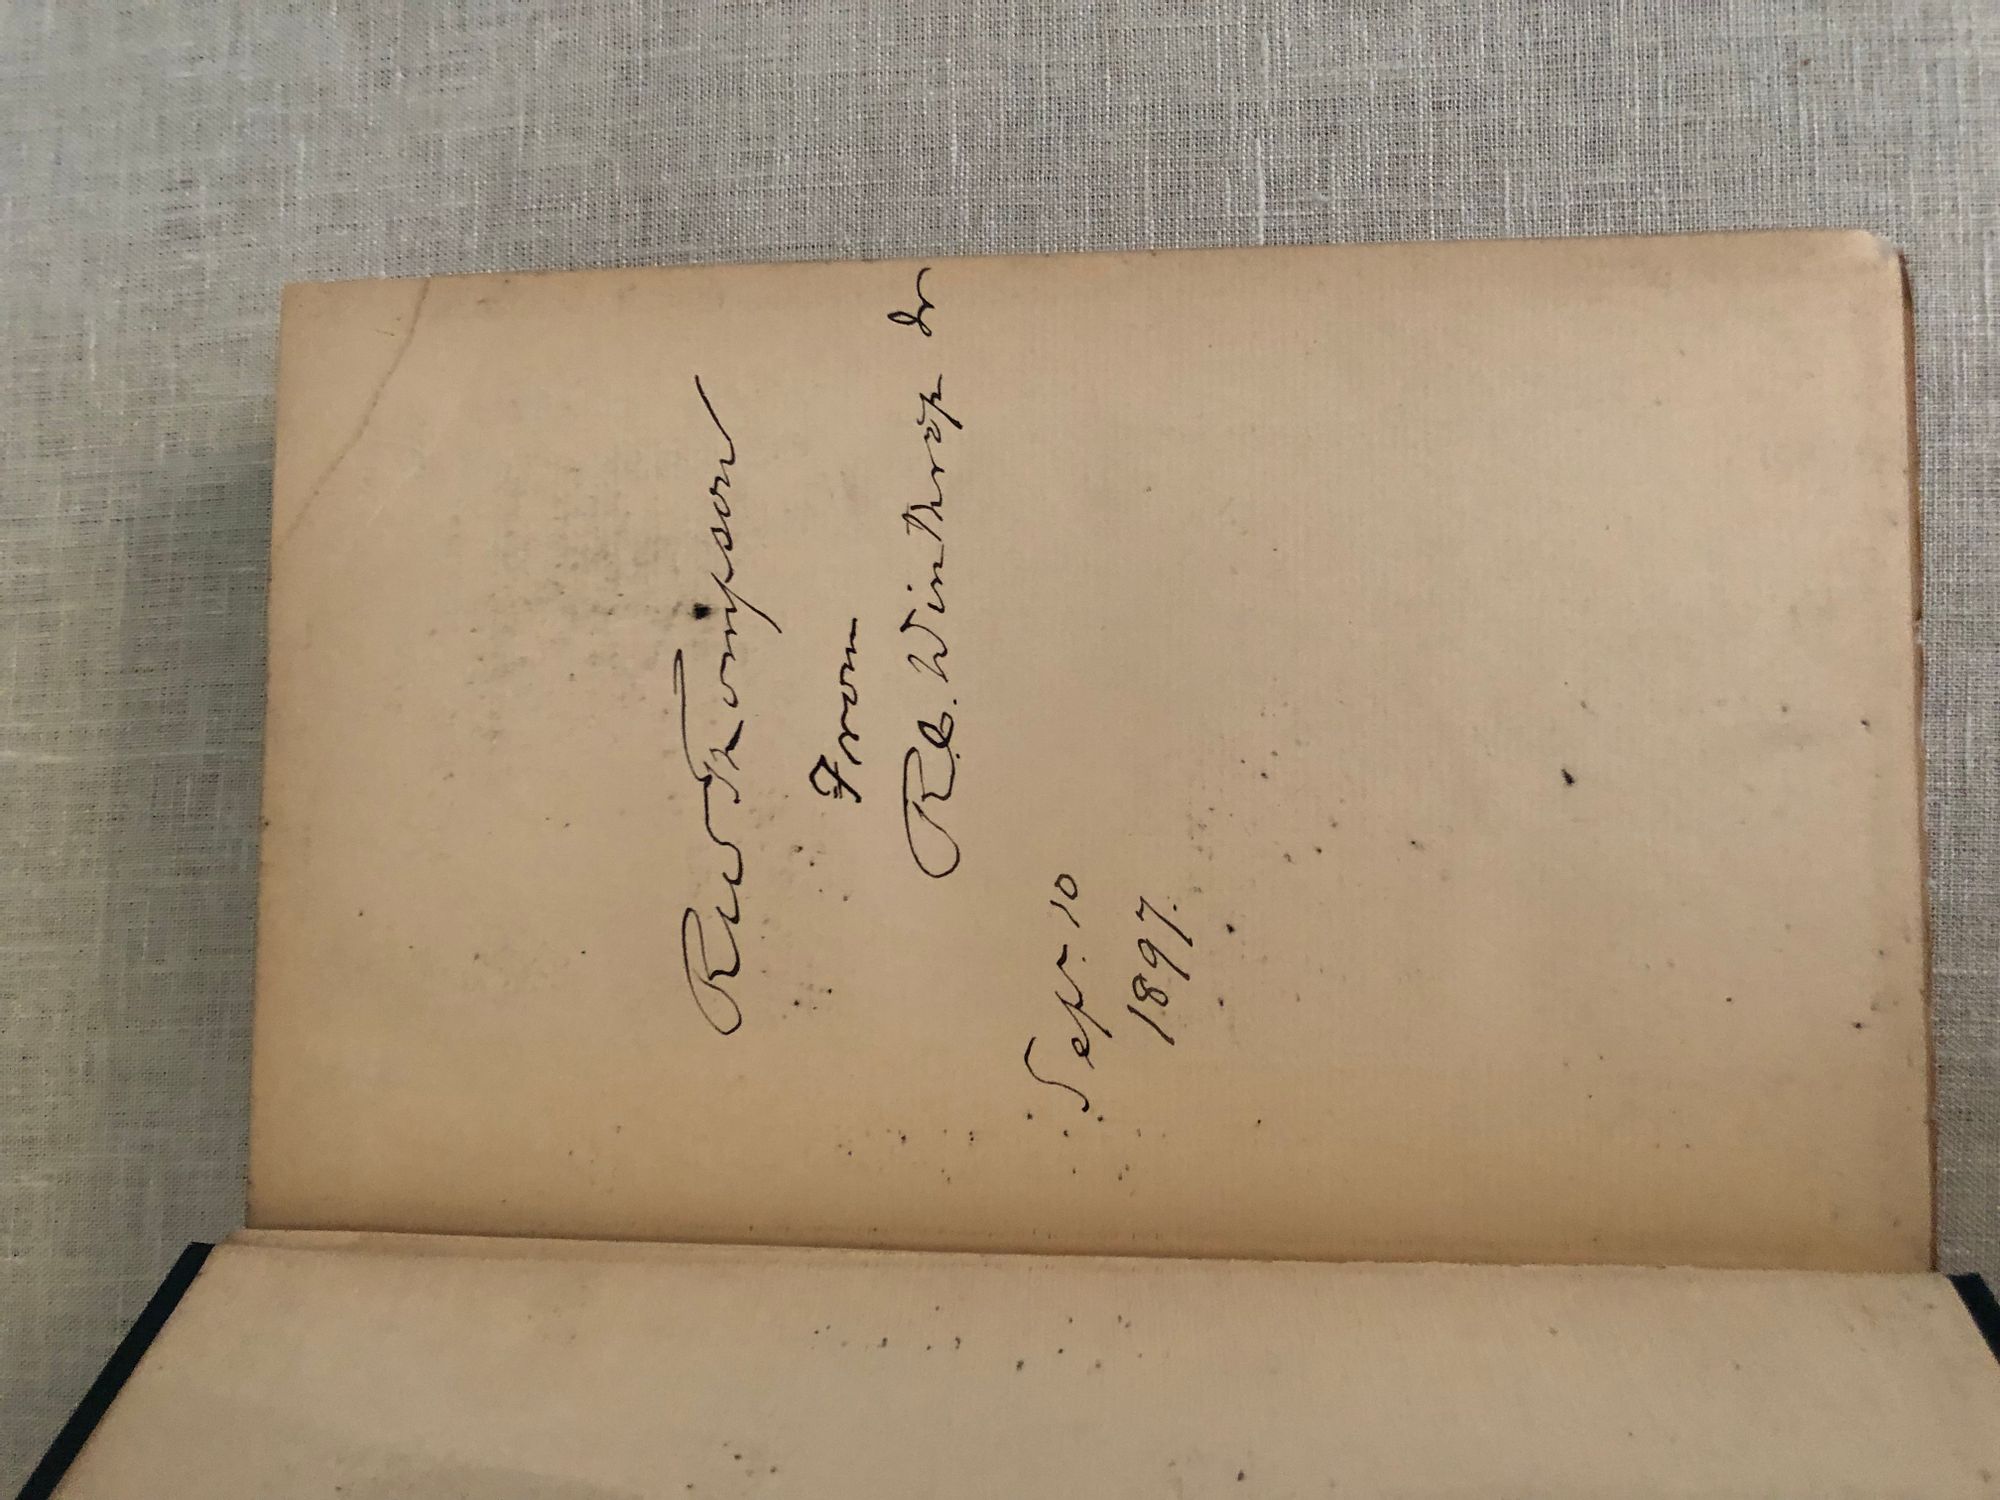 R W Thompson
From
R. C. Winthrop Jr
Sept. 10
1897.